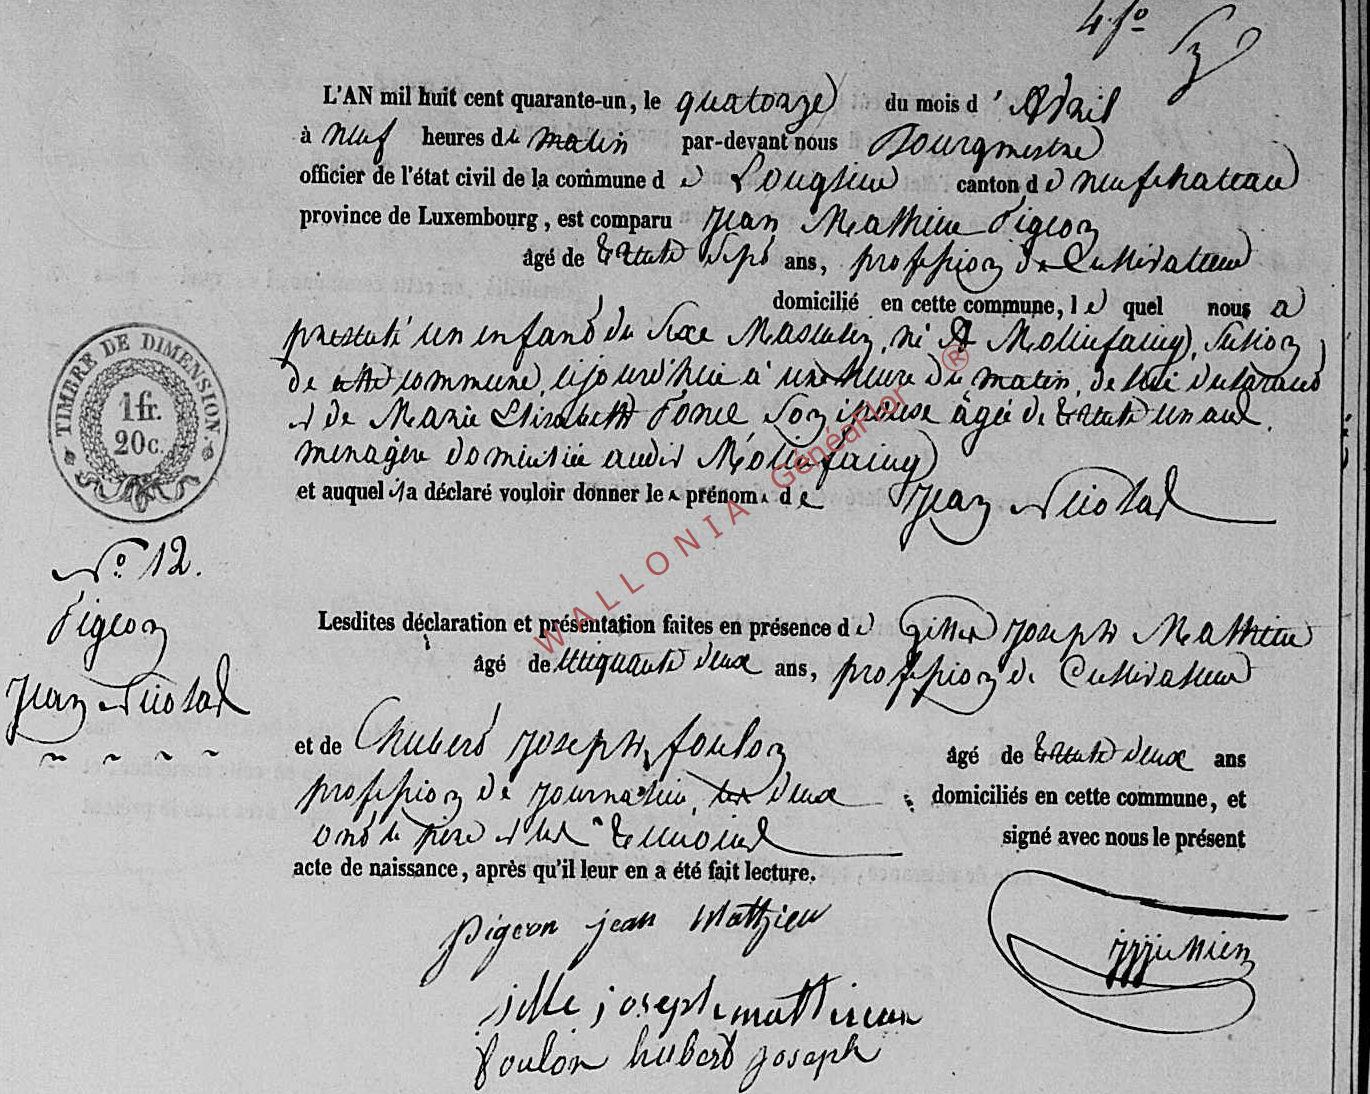 4 fo
L'AN mil huit cent quarante-un, le quatorze du mois d'Avril
à neuf heures du matin par-devant nous Bourgmestre
officier de l'état civil de la commune de Longlier canton de neufchateau
province de Luxembourg, est comparu Jean Mathieu Pigeon
âgé de trente sept ans, profession de Cultivateur
domicilié en cette commune, lequel nous a
présenté un enfant du Sexe Masculin, né à Molinfaing, Section
de cette commune, cejourd'hui à une heure du matin, de lui déclarant
et de Marie Elisabeth Ponce Son épouse âgée de trente un ans.
ménagère domiciliée audit Molinfaing
et auquel il a déclaré vouloir donner le prénom de Jean Nicolas
TIMBRE DE DIMENSION.
1 fr.
20 c.
No. 12.
Pigeon
Jean Nicolas
Lesdites déclaration et présentation faites en présence de Gille Joseph Mathieu
âgé de cinquante deux ans, profession de Cultivateur
et de Hubert Joseph foulon âgé de trente deux ans
profession de journalier, les deux domiciliés en cette commune, et
ont le père et les témoins signé avec nous le présent
acte de naissance, après qu'il leur en a été fait lecture.
pigeon jean Matthieu
jille joseph matthieu
foulon hubert joseph
WALLONIA GénéaFlor ®